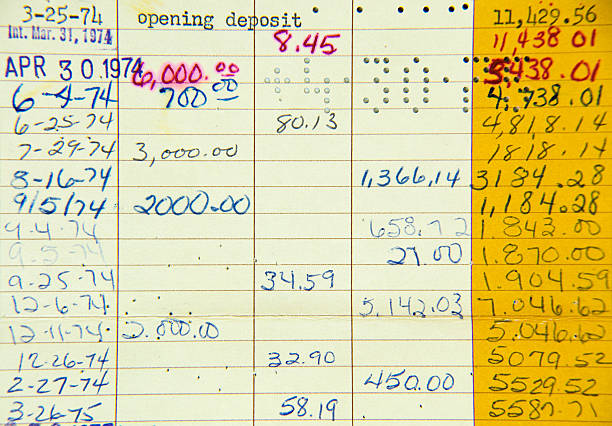 3-25-74 opening deposit 11,429.56
Int. Mar. 31, 1974 8.45 11,438 01
APR 30.1974 6,000.00 5,438.01
6-4-74 700.00 4,738.01
6-25-74 80.13 4,818.14
7-29-74 3,000.00 1818.14
8-16-74 1,366,14 3184.28
9/5/74 2000.00 1,184.28
9-4-74 658.72 1.842.00
9-5-74 27.00 1.870.00
9-25-74 34.59 1.904.59
12-6-74 5,142.03 7,046.62
12-11-74 2.000.00 5.046.62
12-26-74 32.90 5079 52
2-27-74 450.00 5529.52
3-26-75 58.19 5587.71